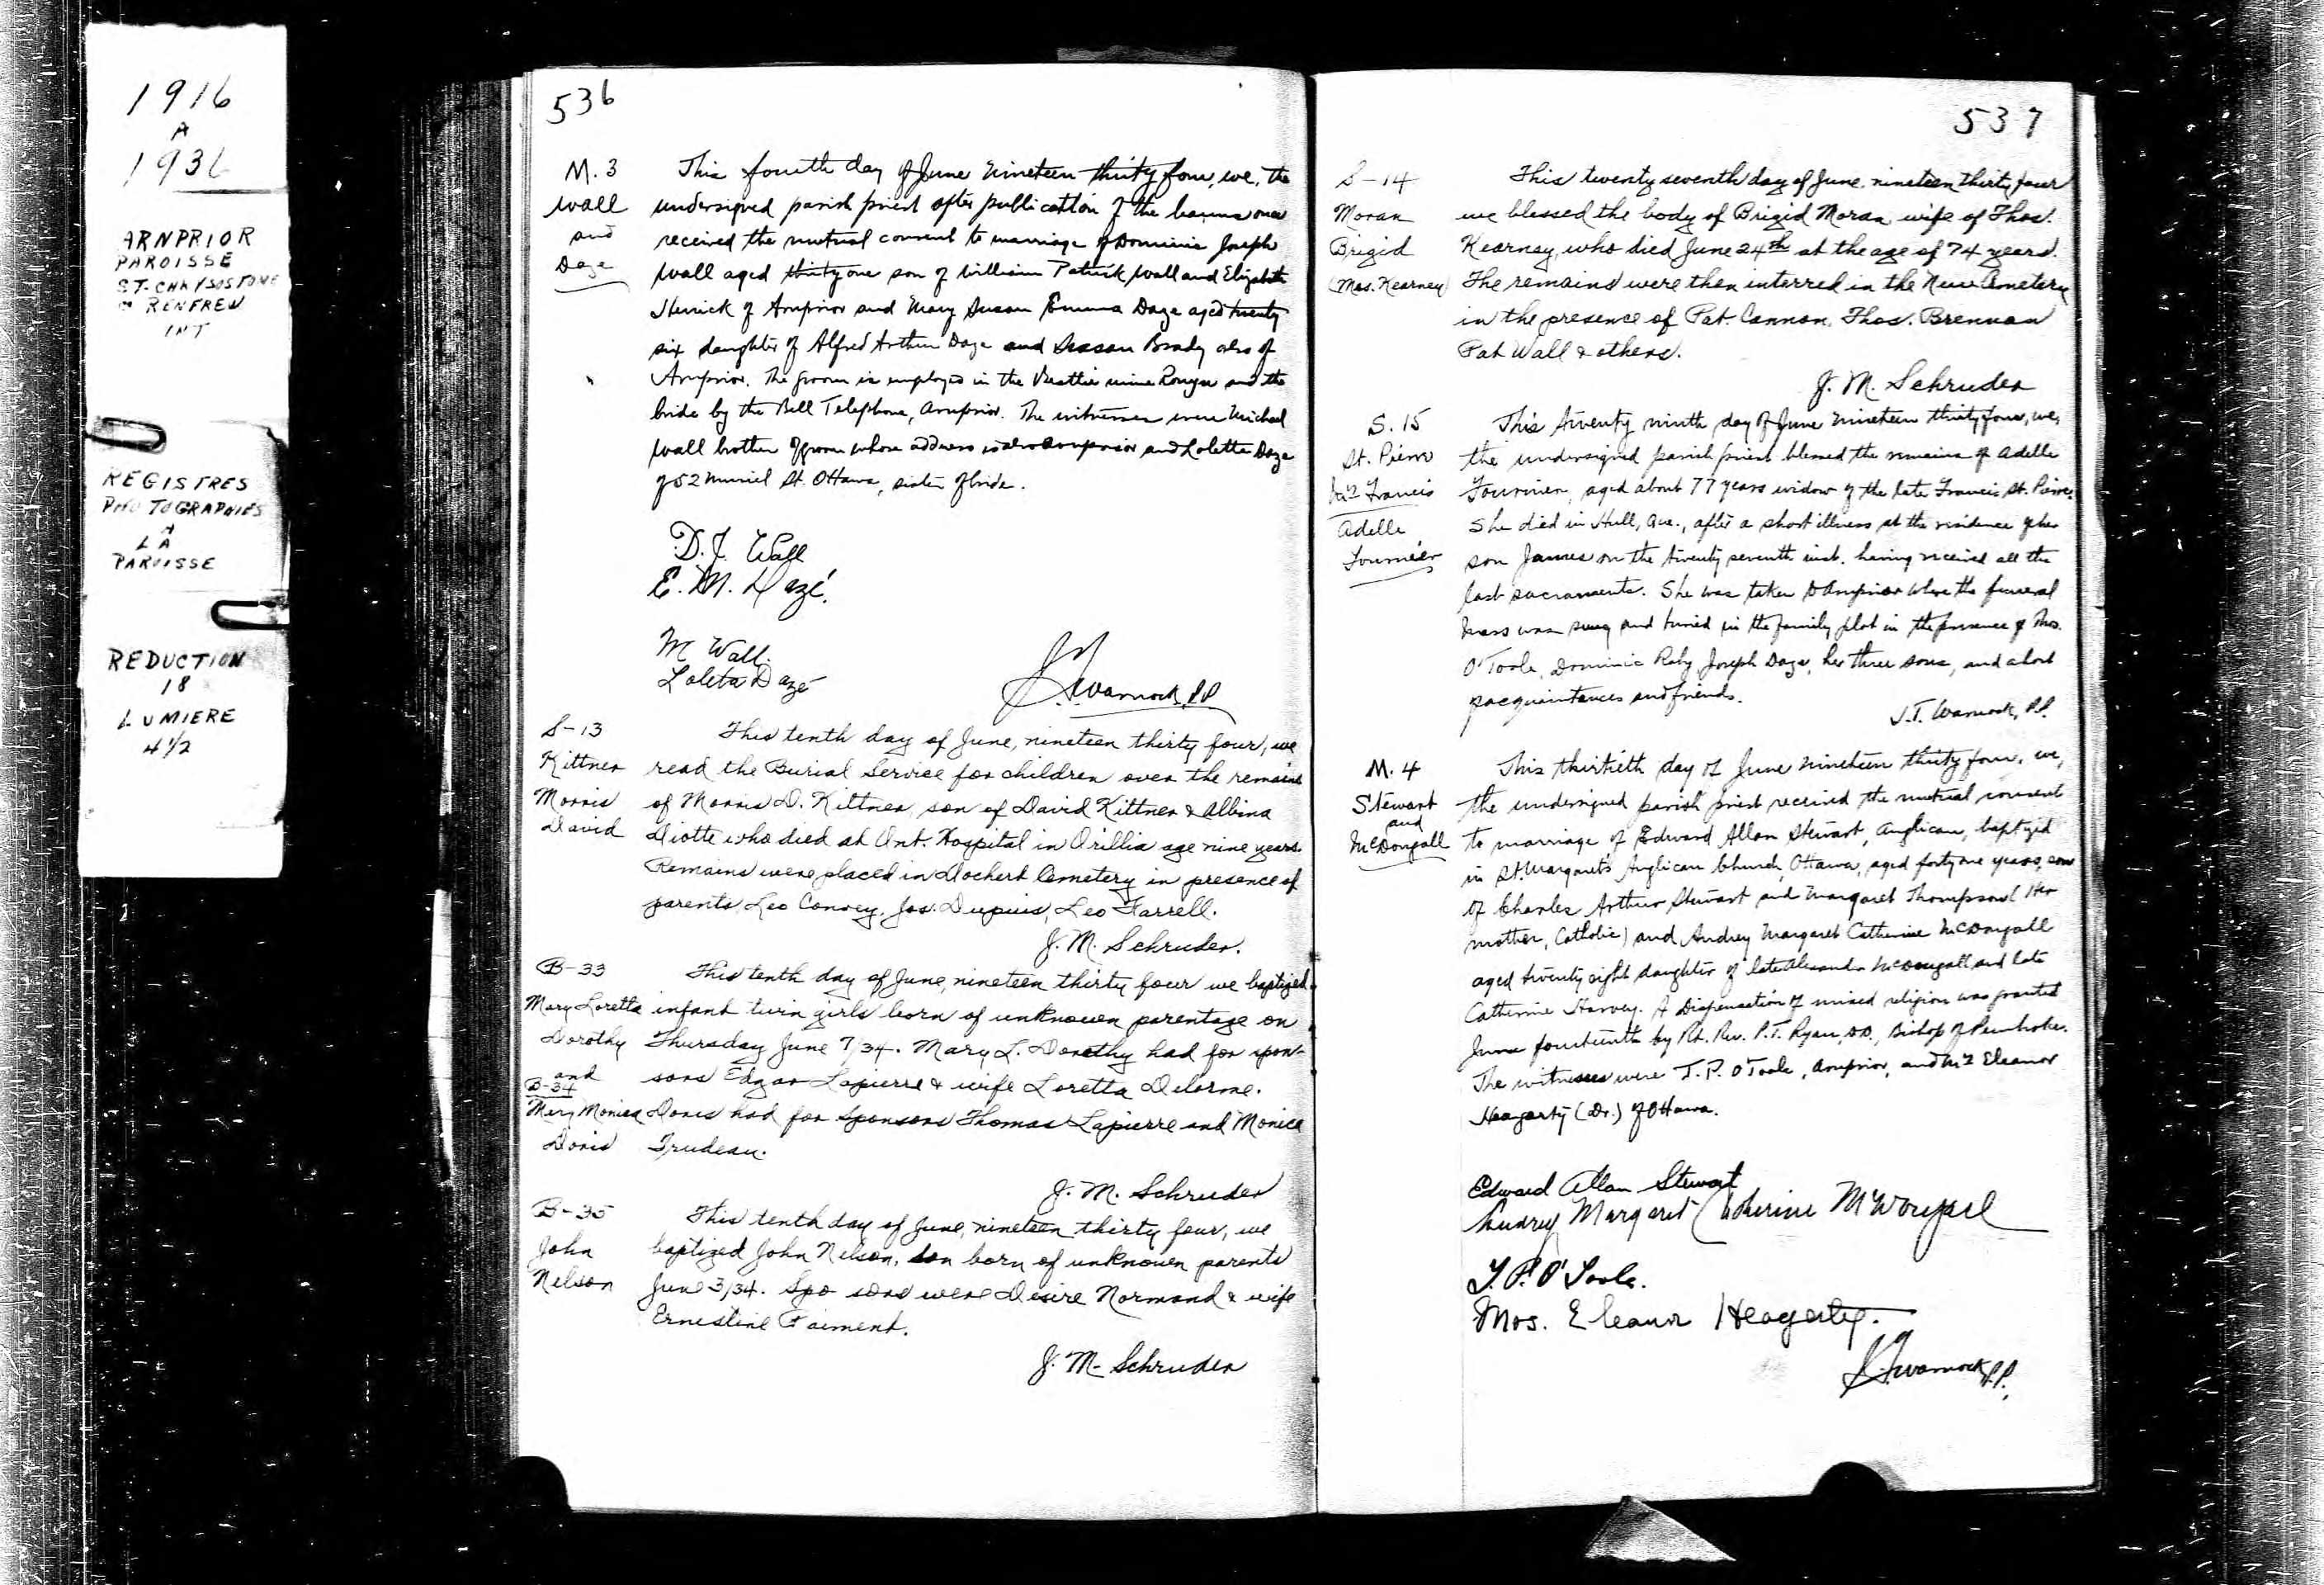 1916
A
1936
ARNPRIOR
PAROISSE
ST. CHRYSOSTOME
RENFREW
REGISTRES
PHOTOGRAPHIES
A
LA
PAROISSE
REDUCTION
18
LUMIERE
4 1/2
536
M. 3
Wall
and
Daze
This fourth day of June nineteen thirty four, we, the
undersigned parish priest after publication of the banns once
received the mutual consent to marriage of Dominic Joseph
Wall aged thirty one son of William Patrick Wall and Elizabeth
Herrick of Arnprior and Mary Susan Emma Daze aged twenty
six daughter of Alfred Arthur Daze and Susan Brady also of
Arnprior. The groom is employed in the Beattie mine Rouyn and the
bride by the Bell Telephone, Arnprior. The witnesses were Michael
Wall brother of groom whose address is also Arnprior and Loletta Daze
of 52 Muriel St. Ottawa, sister of bride.
D. J. Wall
E. M. Dazé.
M Wall.
Loleta Dazé
J. T. Warnock, P.P.
S-13
Kittner
Morris
David
This tenth day of June, nineteen thirty four, we
read the Burial Service for children over the remains
of Morris D. Kittner, son of David Kittner & Albina
Diotte who died at Ont. Hospital in Orillia age nine years.
Remains were placed in Dochert Cemetery in presence of
parents, Leo Convey, Jos. Dupuis, Leo Farrell.
J. M. Schruder.
B-33
Mary Loretta
Dorothy
and
B-34
Mary Monica
Doris
This tenth day of June, nineteen thirty four we baptized
infant twin girls born of unknown parentage on
Thursday June 7/34. Mary L. Dorothy had for spon-
sors Edgar Lapierre & wife Loretta Delorme.
Doris had for sponsors Thomas Lapierre and Monica
Trudeau.
J. M. Schruder
B-35
John
Nelson
This tenth day of June, nineteen thirty four, we
baptized John Nelson, son born of unknown parents
June 3/34. Spo sors were Desire Normand & wife
Ernestine Faiment.
J. M. Schruder
537
S-14
Moran
Brigid
(Mrs. Kearney)
This twenty seventh day of June, nineteen thirty four
we blessed the body of Brigid Moran wife of Thos.
Kearney, who died June 24th at the age of 74 years.
The remains were then interred in the New Cemetery
in the presence of Pat. Cannon, Thos. Brennan
Pat Wall & others.
J. M. Schruder
S. 15
St. Pierre
Mrs Francis
Adelle
Fournier
This twenty ninth day of June nineteen thirty four, we,
the undersigned parish priest blessed the remains of Adelle
Fournier, aged about 77 years widow of the late Francis St. Pierre.
She died in Hull, Que., after a short illness at the residence of her
son James on the twenty seventh inst. having received all the
last sacraments. She was taken to Arnprior where the funeral
Mass was sung and buried in the family plot in the presence of Thos.
O'Toole, Dominic Roby, Joseph Daze, her three sons, and a lot of
acquaintances and friends.
J. T. Warnock, P.P.
M. 4
Stewart
and
McDougall
This thirtieth day of June nineteen thirty four, we,
the undersigned parish priest received the mutual consent
to marriage of Edward Allan Stewart, Anglican, baptized
in St. Margaret's Anglican Church, Ottawa, aged forty one years, son
of Charles Arthur Stewart and Margaret Thompson (Her
mother, Catholic) and Audrey Margaret Catherine McDougall
aged twenty eight daughter of late Alexander McDougall and late
Catherine Harvey. A Dispensation of mixed religion was granted
June fourteenth by Rt. Rev. P.T. Ryan, D.D., Bishop of Pembroke.
The witnesses were T. P. O'Toole, Arnprior, and Mrs Eleanor
Heagerty (Dr.) of Ottawa.
Edward Allan Stewart
Audrey Margaret Catherine McDougall
T. P. O'Toole.
Mrs. Eleanor Heagerty.
J. T. Warnock P.P.